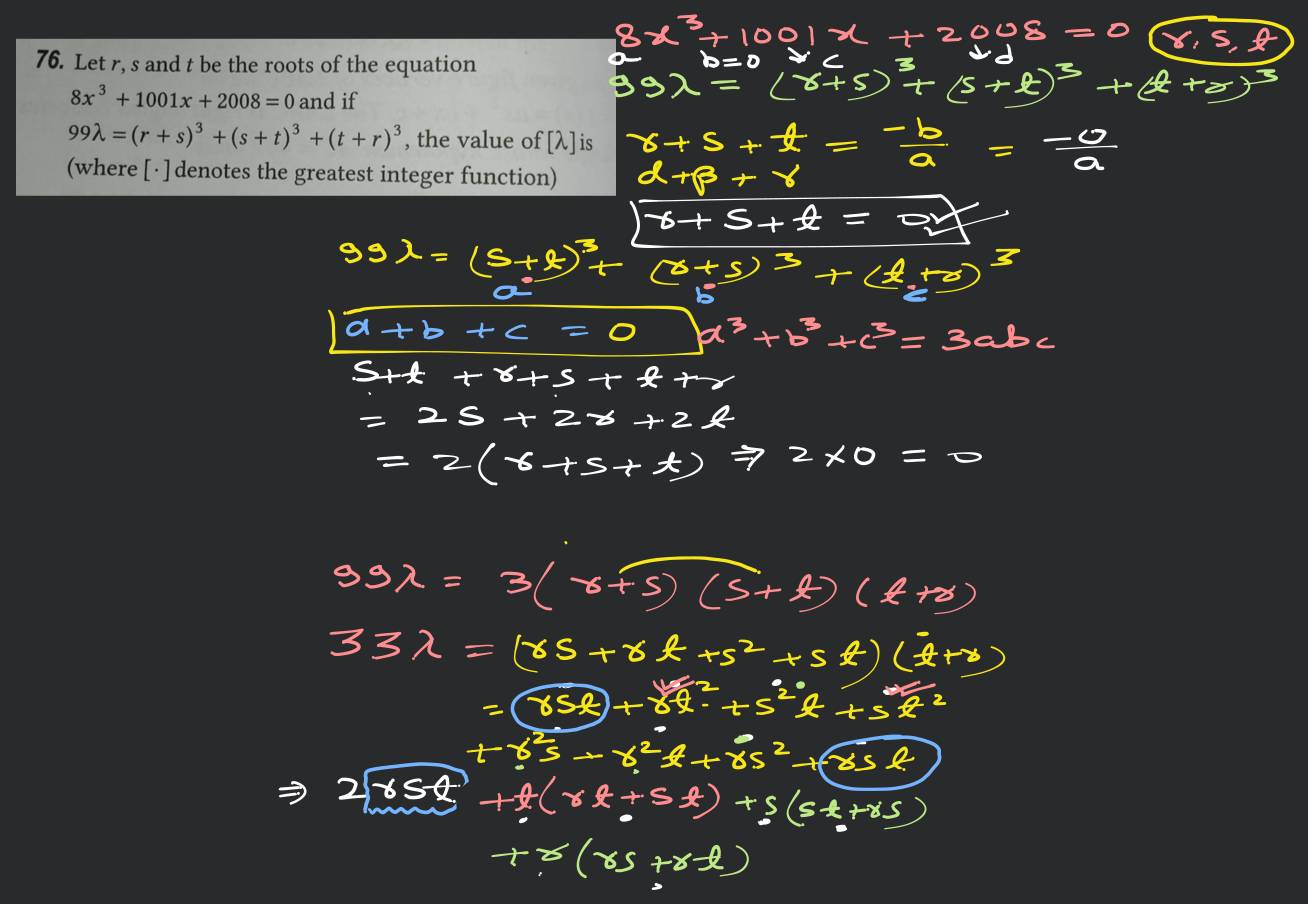 8x³ + 1001x + 2008 = 0 r, s, t
a b=0 c d
76. Let r, s and t be the roots of the equation
8x³ + 1001x + 2008 = 0 and if
99λ = (r + s)³ + (s + t)³ + (t + r)³, the value of [λ] is
(where [·] denotes the greatest integer function)
99λ = (r+s)³ + (s+t)³ + (t+r)³
r + s + t = -b/a = -0/a
α + β + γ
r + s + t = 0
99λ = (s+t)³ + (r+s)³ + (t+r)³
a b c
a + b + c = 0 a³ + b³ + c³ = 3abc
s+t + r+s + t+r
= 2s + 2r + 2t
= 2(r+s+t) ⇒ 2×0 = 0
99λ = 3(r+s)(s+t)(t+r)
33λ = (rs + rt + s² + st)(t+r)
= rst + rt² + s²t + st²
+ r²s + r²t + rs² + rst
⇒ 2rst + t(rt + st) + s(st + rs)
+ r(rs + rt)